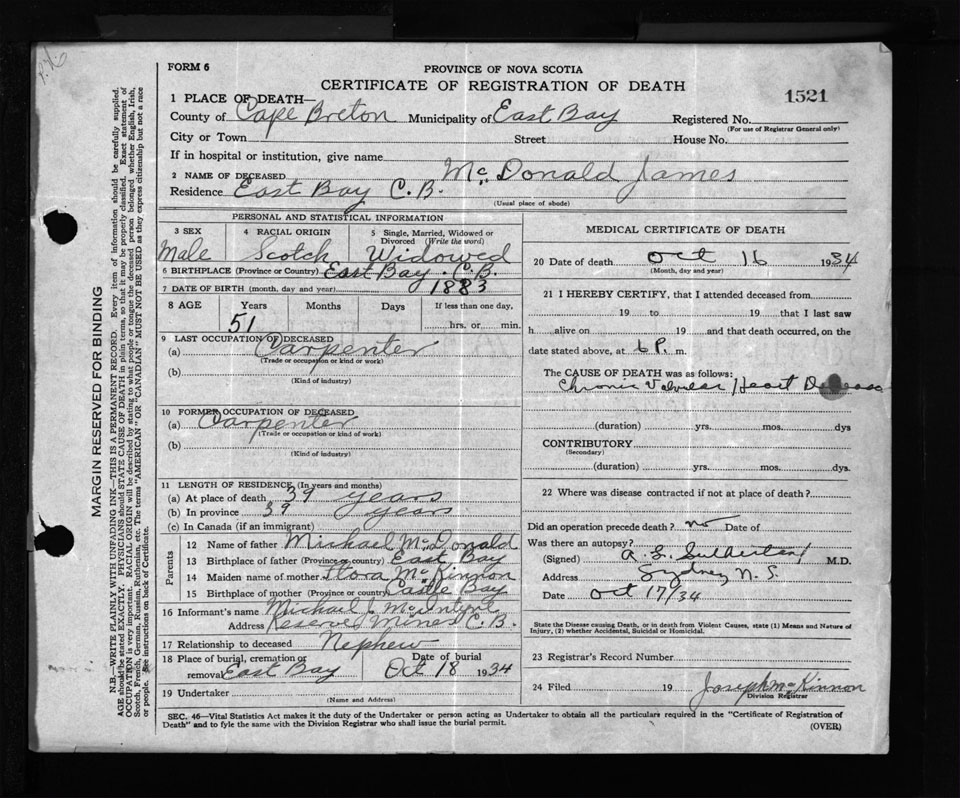 FORM 6
PROVINCE OF NOVA SCOTIA
CERTIFICATE OF REGISTRATION OF DEATH
1521
1 PLACE OF DEATH—
County of Cape Breton Municipality of East Bay Registered No.
(For use of Registrar General only)
City or Town Street House No.
If in hospital or institution, give name
2 NAME OF DECEASED Mc Donald James
Residence East Bay C.B.
(Usual place of abode)
PERSONAL AND STATISTICAL INFORMATION
3 SEX Male
4 RACIAL ORIGIN Scotch
5 Single, Married, Widowed or Divorced (Write the word) Widowed
6 BIRTHPLACE (Province or Country) East Bay C.B.
7 DATE OF BIRTH (month, day and year) 1883
8 AGE Years Months Days If less than one day,
51 hrs. or min.
9 LAST OCCUPATION OF DECEASED
(a) Carpenter
(Trade or occupation or kind or work)
(b)
(Kind of industry)
10 FORMER OCCUPATION OF DECEASED
(a) Carpenter
(Trade or occupation or kind of work)
(b)
(Kind of industry)
11 LENGTH OF RESIDENCE (In years and months)
(a) At place of death 39 years
(b) In province 39 years
(c) In Canada (if an immigrant)
Parents
12 Name of father Michael Mc Donald
13 Birthplace of father (Province or country) East Bay
14 Maiden name of mother Flora Mc Kinnon
15 Birthplace of mother (Province or country) Castle Bay
16 Informant's name Michael J. McIntyre
Address Reserve Mines C.B.
17 Relationship to deceased Nephew
18 Place of burial, cremation or removal East Bay Date of burial Oct 18 1934
19 Undertaker
(Name and Address)
MEDICAL CERTIFICATE OF DEATH
20 Date of death Oct 16 1934
(Month, day and year)
21 I HEREBY CERTIFY, that I attended deceased from
19 to 19 that I last saw
h alive on 19 and that death occurred, on the
date stated above, at 6 P. m.
The CAUSE OF DEATH was as follows:
Chronic Valvular Heart Disease
(duration) yrs. mos. dys
CONTRIBUTORY
(Secondary)
(duration) yrs. mos. dys.
22 Where was disease contracted if not at place of death?
Did an operation precede death? no Date of
Was there an autopsy?
(Signed) A. S. Sutherland M.D.
Address Sydney N.S.
Date Oct 17/34
State the Disease causing Death, or in death from Violent Causes, state (1) Means and Nature of
Injury, (2) whether Accidental, Suicidal or Homicidal.
23 Registrar's Record Number
24 Filed 19 Joseph McKinnon
Division Registrar
SEC. 46—Vital Statistics Act makes it the duty of the Undertaker or person acting as Undertaker to obtain all the particulars required in the "Certificate of Registration of
Death" and to fyle the same with the Division Registrar who shall issue the burial permit.
(OVER)
MARGIN RESERVED FOR BINDING
N.B.—WRITE PLAINLY WITH UNFADING INK—THIS IS A PERMANENT RECORD. Every item of information should be carefully supplied.
AGE should be stated EXACTLY. PHYSICIANS should STATE CAUSE OF DEATH in plain terms, so that it may be properly classified. Exact statement of
OCCUPATION is very important. RACIAL ORIGIN will be described by stating to what people or tongue the deceased person belonged whether English, Irish,
Scotch, French, German, Russian, Ruthenian, etc. The terms "AMERICAN" OR "CANADIAN" MUST NOT BE USED as they express citizenship but not a race
or people. See instructions on back of Certificate.